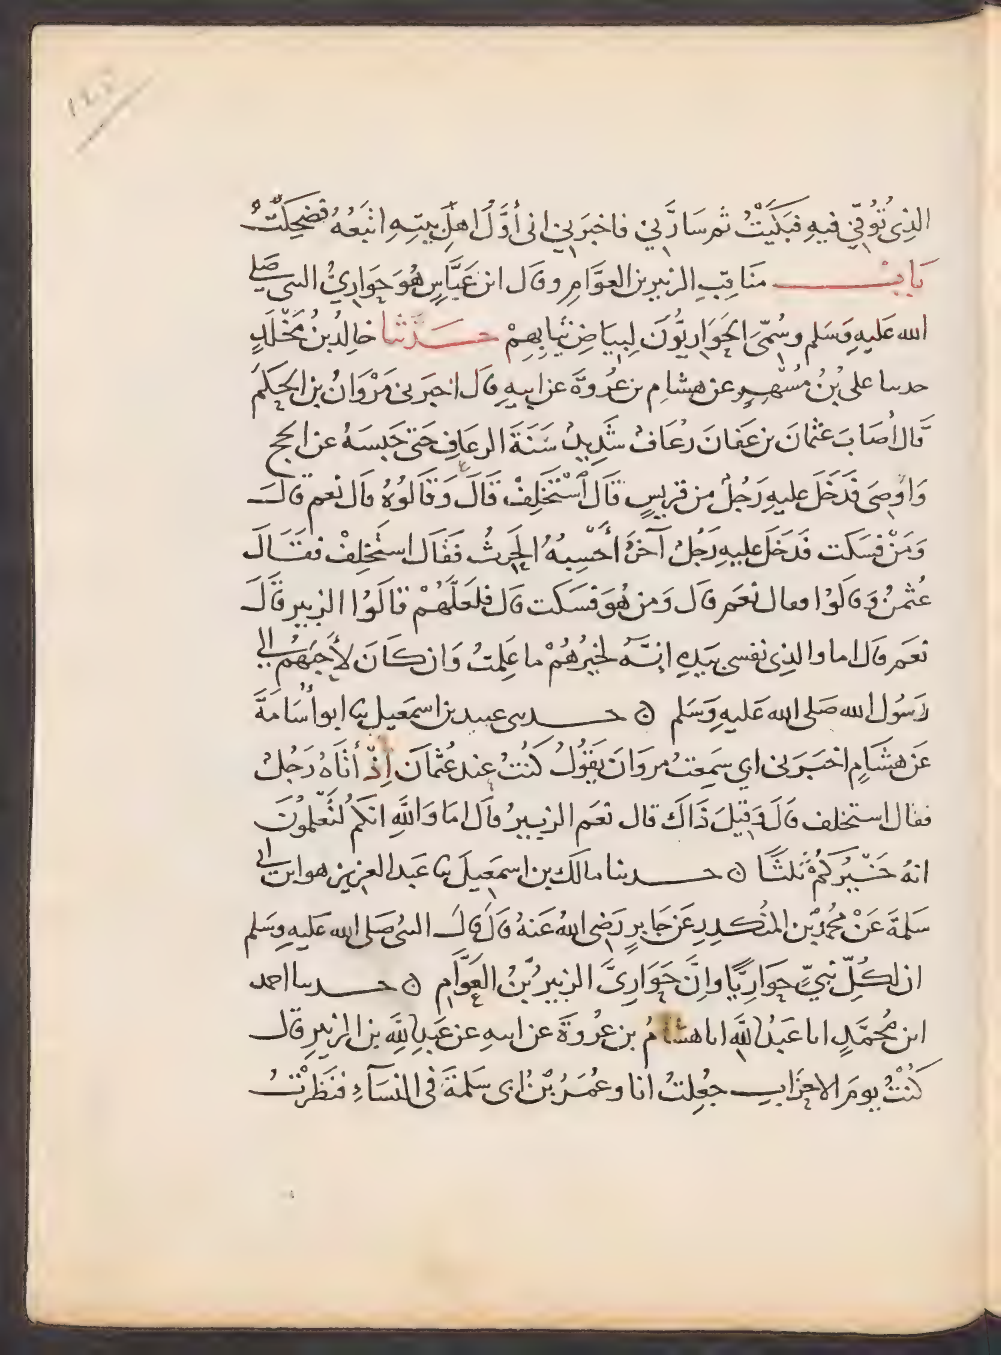 الذِى تُوُفِّىَ فيهِ فبَكَيْتُ ثم سارَّنِي فاخبَرنِي انى أوَّلُ اهلِ بيتهِ اتْبَعُهُ فضَحِكْتُ
بَابُ مناقبِ الزبير بن العوَّامِ وقال ابن عَبَّاسٍ هُوَ حَوَارِيُّ النبى صَلى
الله عَليهِ وَسَلم وسُمّىَ الحَوَارِيُّونَ لِبيَاضِ ثيابِهِمْ حَدَّثنا خالِدُ بنُ مَخْلَدٍ
حدثنا على بْنُ مُسْهِرٍ عن هشام بن عُروةَ عن ابيهِ قال اخبَرنى مَرْوَانُ بن الحكمِ
قال اَصَابَ عثمانَ بن عَفانَ رُعَافٌ شدِيدٌ سَنَةَ الرعَافِ حَتى حَبَسَهُ عن الحج
وَاوْصى فدَخَلَ عليهِ رَجُلٌ من قريسٍ قالَ اسْتَخلِفْ قالَ وَقالُوهُ قال نعم قالَ
وَمَنْ فسَكت فدَخَلَ عليهِ رَجُلٌ آخرُ أحْسِبُهُ الحرثَ فقال استَخلِفْ فقالَ
عُثمنُ وَقالوْا فقال نعَم قال وَمن هُوَ فسَكت قال فلعَلهُمْ قالوُا الزبير قالَ
نعَم قال اما والذِى نفسى بيَدِهِ اِنَّهُ لخيرُهُمْ ما عَلِمتُ وَان كَانَ لأَحَبّهُمْ الى
رَسُول الله صَلى الله عَليهِ وَسَلم ۞ حدثنى عبيد بن اسمَعيل ثنا ابو أُسَامَةَ
عَن هشَامٍ اخبَرَنى ابى سَمِعتُ مروَانَ يقولُ كُنتُ عند عُثمانَ اِذْ أتاهُ رَجُلٌ
فقال استخلف قالَ وَقيلَ ذَاكَ قال نعَم الزبيرُ قالَ امَا وَاللهِ انكم لتَعْلمُونَ
انهُ خَيْرُكُمْ ثلثًا ۞ حدثنا مالك بن اسمَعيلَ ثنا عَبد العزيز هو ابن ابى
سَلمَةَ عَنْ مُحمَّد بْن المنْكدِرِ عَن جَابرٍ رَضى الله عَنهُ قالَ قالَ النبىُ صَلى الله عَليهِ وَسَلم
ان لكُلِّ نبىٍّ حوَارِيًّا واِنَّ حَوَارِىَّ الزبيرُ بْنُ العَوَّامِ ۞ حدثنا احمد
ابن مُحمَّدٍ انا عَبدُ اللهِ انا هشامُ بن عُروةَ عن ابيهِ عن عَبدِ اللهِ بن الزبيرِ قال
كُنْتُ يومَ الاحزابِ جُعِلتُ انا وعُمَرُ بْنُ ابى سَلمَةَ فى النسَآءِ فنَظرْتُ